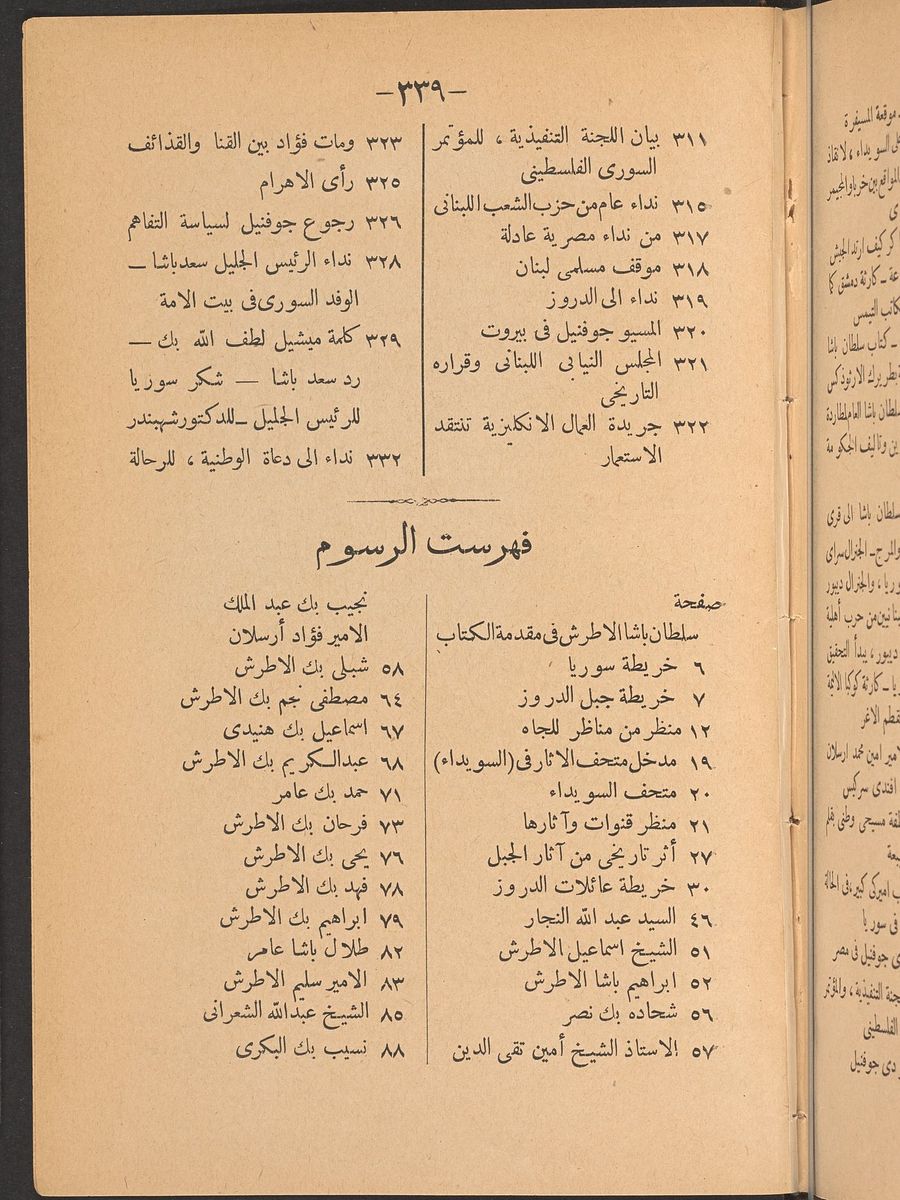 -٣٣٩-
٣١١ بيان اللجنة التنفيذية ، للمؤتمر
السورى الفلسطينى
٣١٥ نداء عام من حزب الشعب اللبنانى
٣١٧ من نداء مصرية عادلة
٣١٨ موقف مسلمى لبنان
٣١٩ نداء الى الدروز
٣٢٠ المسيو جوفنيل فى بيروت
٣٢١ المجلس النيابى اللبنانى وقراره
التاريخى
٣٢٢ جريدة العمال الانكليزية تنتقد
الاستعمار
٣٢٣ ومات فؤاد بين القنا والقذائف
٣٢٥ رأى الاهرام
٣٢٦ رجوع جوفنيل لسياسة التفاهم
٣٢٨ نداء الرئيس الجليل سعد باشا —
الوفد السورى فى بيت الامة
٣٢٩ كلمة ميشيل لطف الله بك —
رد سعد باشا — شكر سوريا
للرئيس الجليل — للدكتور شهبندر
٣٣٢ نداء الى دعاة الوطنية ، للرحالة
فهرست الرسوم
صفحة
سلطان باشا الاطرش فى مقدمة الكتاب
٦ خريطة سوريا
٧ خريطة جبل الدروز
١٢ منظر من مناظر للجاه
١٩ مدخل متحف الاثار فى (السويداء)
٢٠ متحف السويداء
٢١ منظر قنوات وآثارها
٢٧ أثر تاريخى من آثار الجبل
٣٠ خريطة عائلات الدروز
٤٦ السيد عبد الله النجار
٥١ الشيخ اسماعيل الاطرش
٥٢ ابراهيم باشا الاطرش
٥٦ شحاده بك نصر
٥٧ الاستاذ الشيخ أمين تقى الدين
نجيب بك عبد الملك
الامير فؤاد أرسلان
٥٨ شبلى بك الاطرش
٦٤ مصطفى نجم بك الاطرش
٦٧ اسماعيل بك هنيدى
٦٨ عبد الكريم بك الاطرش
٧١ حمد بك عامر
٧٣ فرحان بك الاطرش
٧٦ يحى بك الاطرش
٧٨ فهد بك الاطرش
٧٩ ابراهيم بك الاطرش
٨٢ طلال باشا عامر
٨٣ الامير سليم الاطرش
٨٥ الشيخ عبد الله الشعرانى
٨٨ نسيب بك البكرى